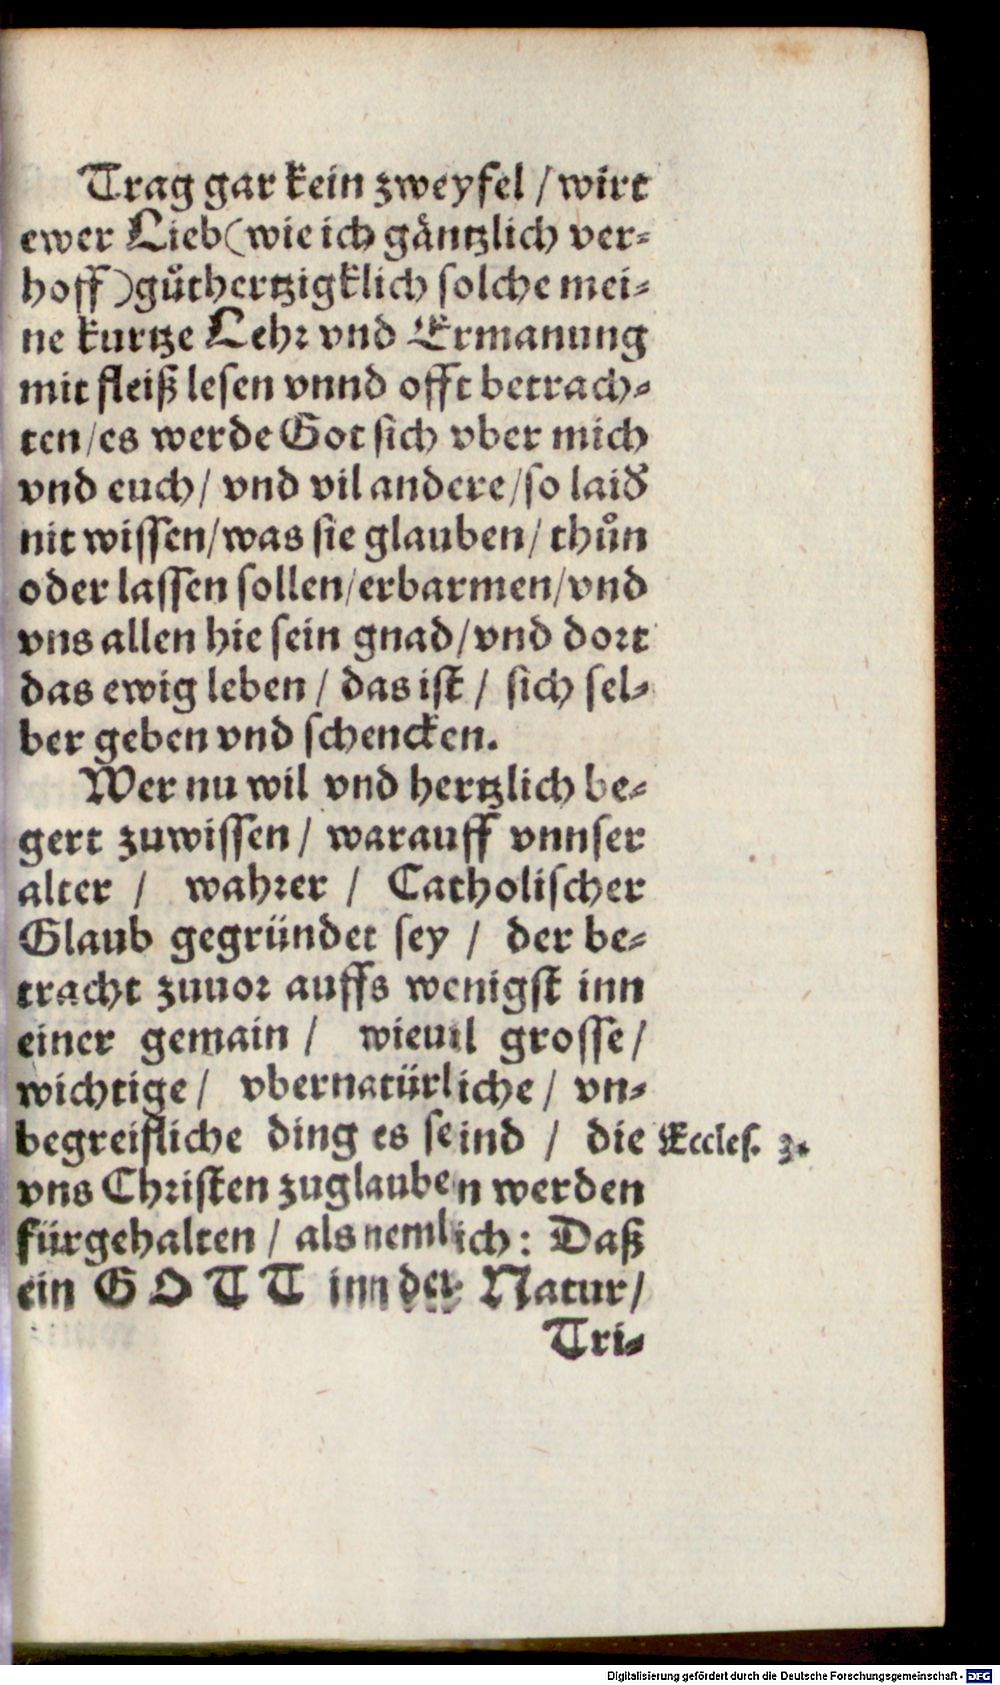 Trag gar kein zweyfel / wirt
ewer Lieb (wie ich gäntzlich ver-
hoff) guͤthertzigklich solche mei-
ne kurtze Lehr vnd Ermanung
mit fleiß lesen vnnd offt betrach-
ten / es werde Got sich vber mich
vnd euch / vnd vil andere / so laid
nit wissen / was sie glauben / thůn
oder lassen sollen / erbarmen / vnd
vns allen hie sein gnad / vnd dort
das ewig leben / das ist / sich sel-
ber geben vnd schencken.
Wer nu wil vnd hertzlich be-
gert zuwissen / warauff vnnser
alter / wahrer / Catholischer
Glaub gegründet sey / der be-
tracht zuuor auffs wenigst inn
einer gemain / wieuil grosse /
wichtige / vbernatürliche / vn-
begreifliche ding es seind / die
Eccles. 3.
vns Christen zuglauben werden
fürgehalten / als nemlich: Daß
ein GOTT inn der Natur /
Tri-
Digitalisierung gefördert durch die Deutsche Forschungsgemeinschaft - DFG